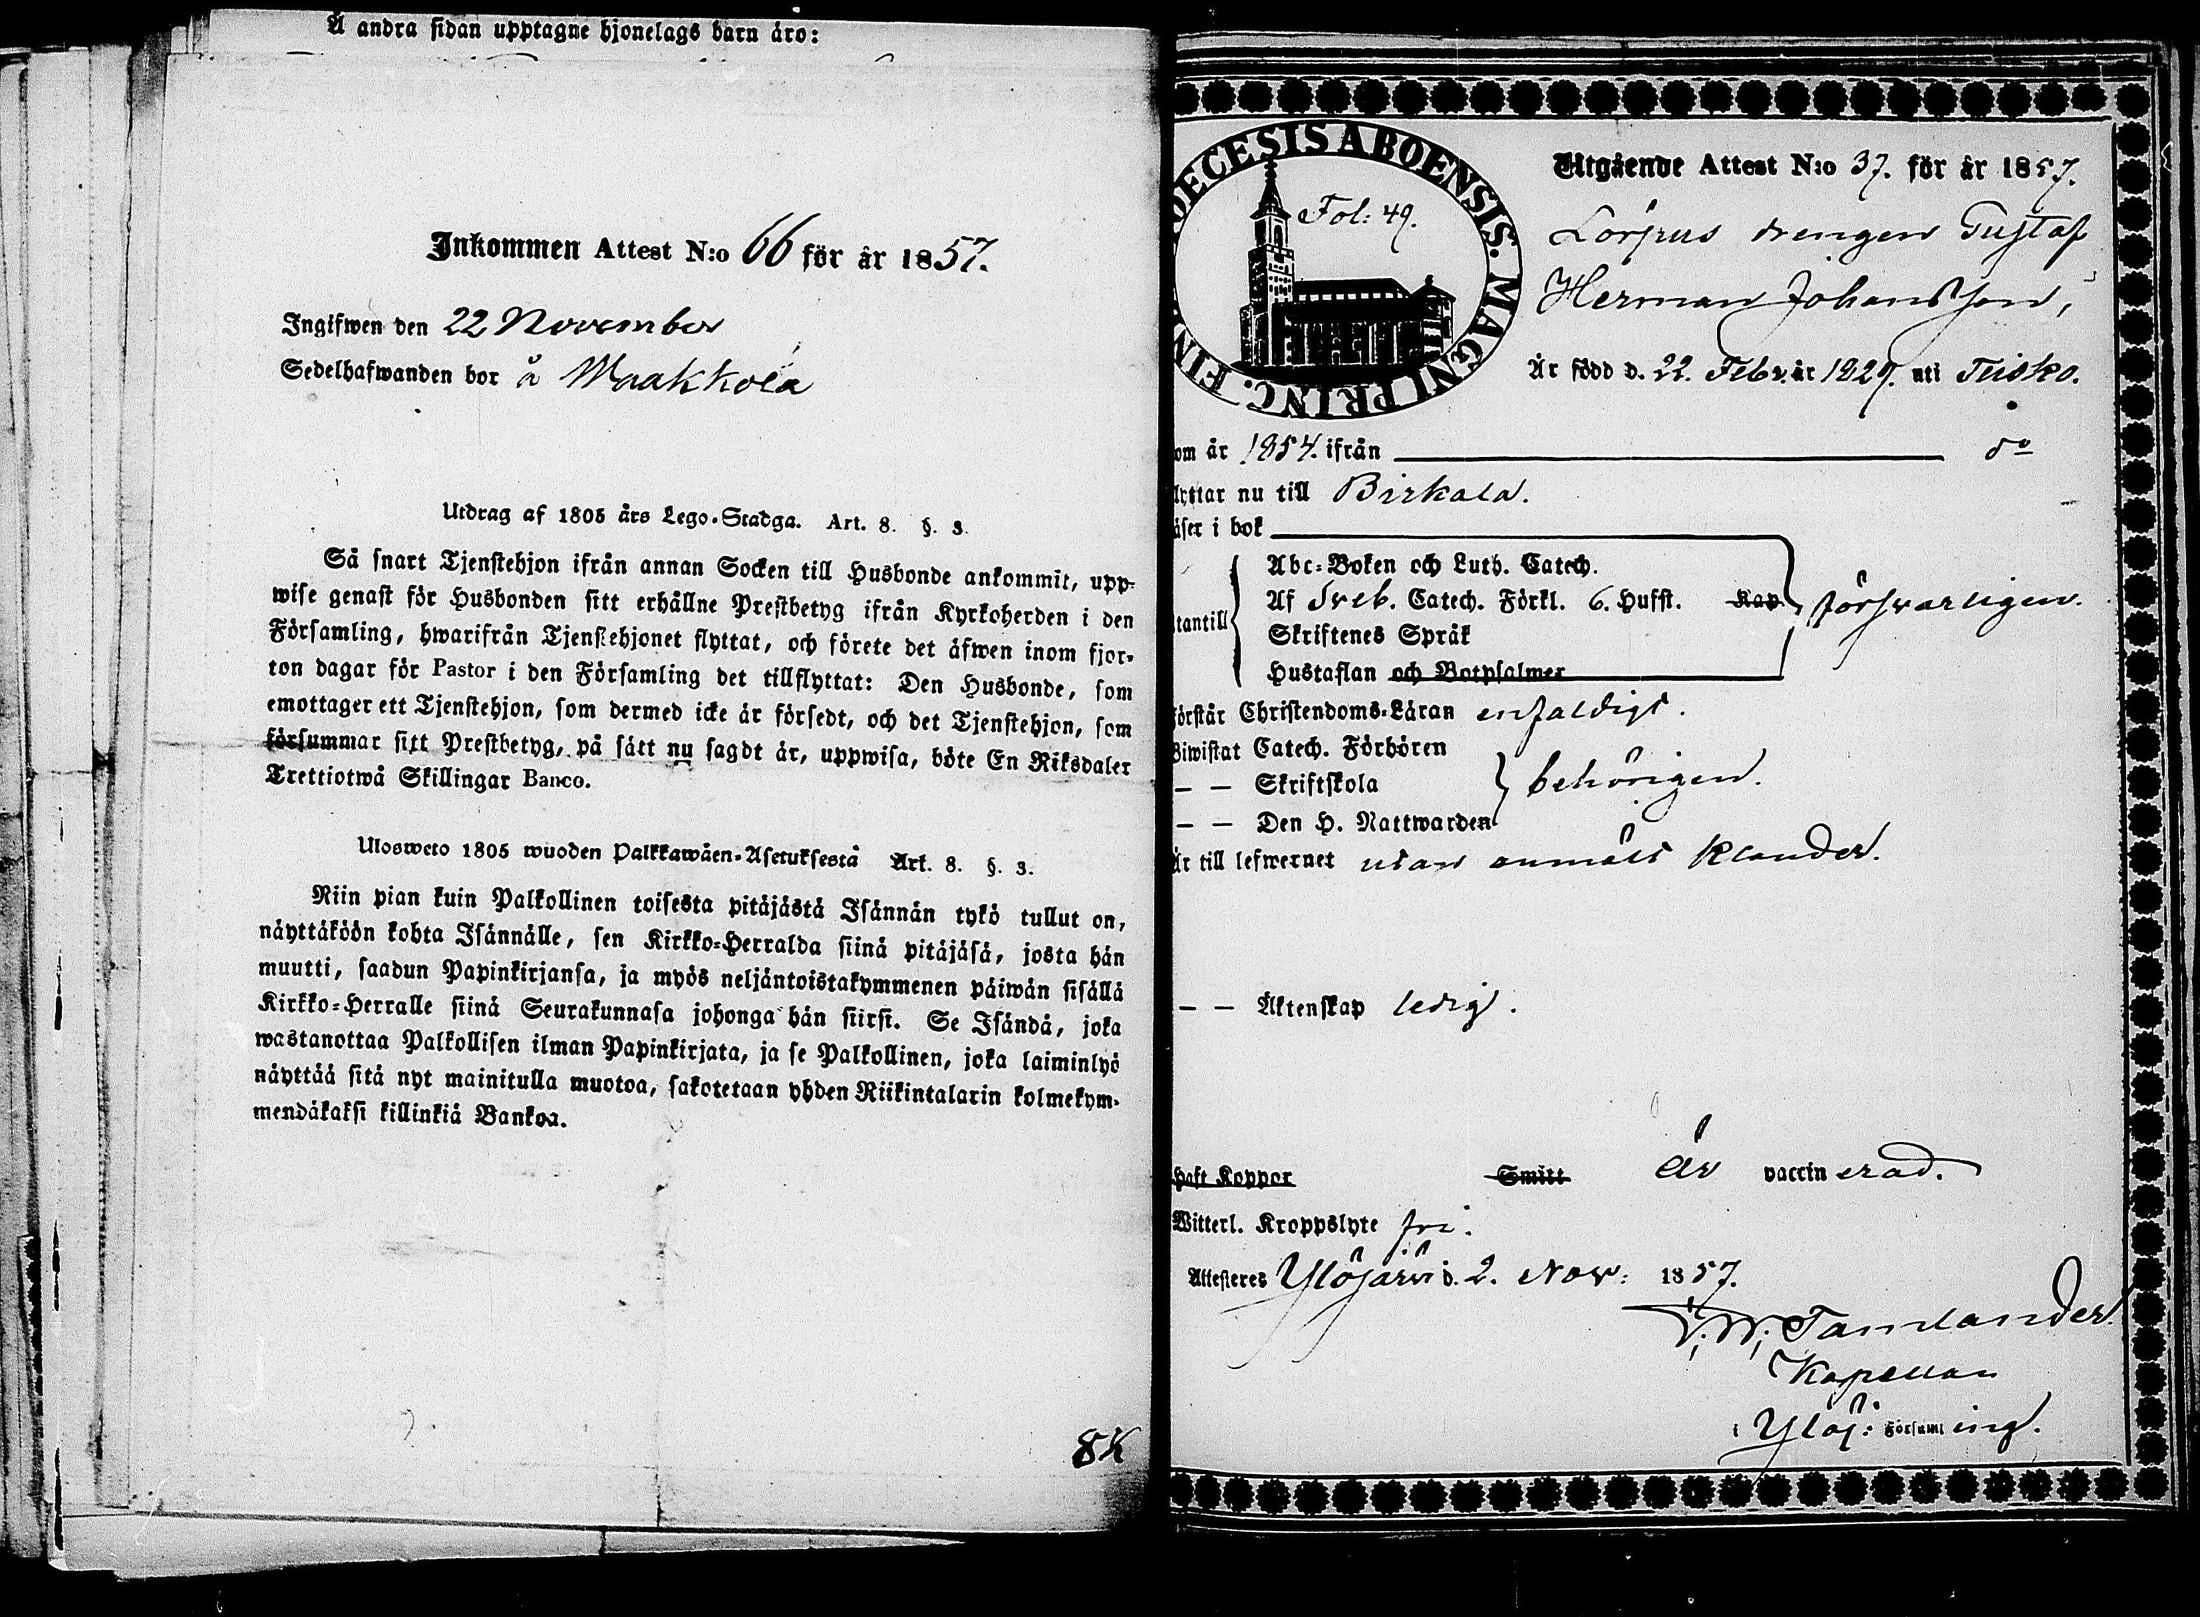 Å andra sidan upptagne hjonelags barn äro:
Inkommen Attest N:o 66 för år 1857.
Ingifwen den 22 November
Sedelhafwanden bor å Maakkola
Utdrag af 1805 års Lego-Stadga. Art. 8. §. 3.
Så snart Tjenstehjon ifrån annan Socken till Husbonde ankommit, upp-
wise genast för Husbonden sitt erhållne Prestbetyg ifrån Kyrkoherden i den
Församling, hwarifrån Tjenstehjonet flyttat, och förete det äfwen inom fjor-
ton dagar för Pastor i den Församling det tillflyttat: Den Husbonde, som
emottager ett Tjenstehjon, som dermed icke är försedt, och det Tjenstehjon, som
försummar sitt Prestbetyg, på sätt nu sagdt är, uppwisa, böte En Riksdaler
Trettiotwå Skillingar Banco.
Ulosweto 1805 wuoden Palkkawäen-Asetuksesta Art. 8. §. 3.
Niin pian kuin Palkollinen toisesta pitäjästä Isännän tykö tullut on,
näyttäköön kohta Isännälle, sen Kirkko-Herralda siinä pitäjäsä, josta hän
muutti, saadun Papinkirjansa, ja myös neljäntoistakymmenen päiwän sisällä
Kirkko-Herralle siinä Seurakunnasa johonga hän siirsi. Se Isändä, joka
wastanottaa Palkollisen ilman Papinkirjata, ja se Palkollinen, joka laiminlyö
näyttää sitä nyt mainitulla muotoa, sakotetaan yhden Riikintalarin kolmekym-
mendäkaksi killinkiä Bankoa.
DIOECESIS ABOENSIS. MAGNI PRINC. FIN
Fol: 49.
Utgående Attest N:o 37. för år 1857.
Lörpus drengen Gustaf
Herman Johansson,
Är född d. 22. Febr. år 1829. uti Teisko.
om år 1854. ifrån do
lyttar nu till Birkala.
äser i bok
tantill
Abc-Boken och Luth. Catech.
Af Sveb. Catech. Förkl. 6. Hufst. Kap. försvarligen.
Skriftenes Språk
Hustaflan och Botpsalmer
örstår Christendoms-Läran enfaldigt.
Biwistat Catech. Förhören
— — Skriftskola behörigen.
— — Den H. Nattwarden
Är till lefwernet utan anmält klander.
— — Äktenskap ledig.
Haft Koppor Smitt är vaccinerad.
Witterl. Kroppslyte fri.
Attesteres Ylöjärvi d. 2. Nov: 1857.
Tamlander.
Kapellan
i Ylöj: Församling.